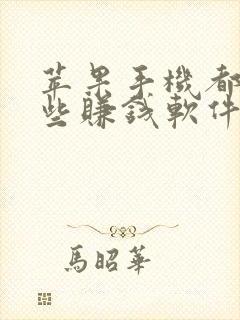 苹果手機都
些賺錢軟件
馬昭華